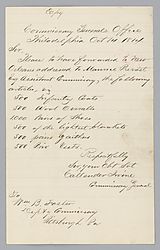 Copy
Commissary General's Office
Philadelphia Oct 14 1814
Sir,
Please to have forwarded to New
Orleans addressed to
Assistant Commissary, the following
articles, viz
500 Infantry Coats
500 Wool Overalls
1000 Pairs of Shoes
500 of the Blankets
500 pairs Gaiters
500
Respectfully
Sir, your Obt Svt
Callender Irvine
Commissary Genal
To
Wm B. Foster
Depty Commissary
Pittsburgh Pa